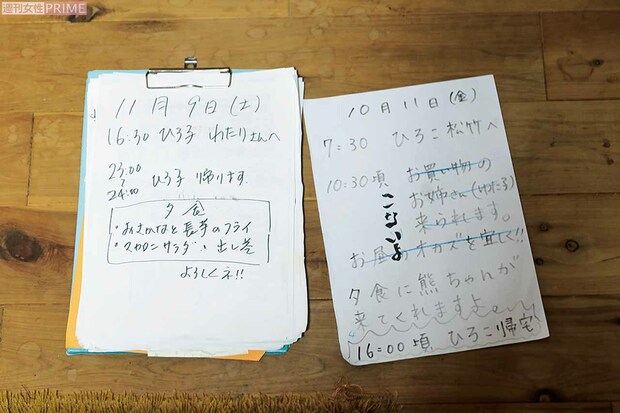 週刊女性PRIME
11月9日(土)
16:30 ひろ子 わたりさんへ
23:00
〜
24:00
ひろ子 帰ります
夕食
・おさかなと長芋のフライ
・マカロニサラダ、出し巻
よろしくネ!!
10月11日(金)
7:30 ひろこ松竹へ
10:30頃 お買い物の
お姉さん(わたる)
来られます。
こないよ
お昼のオカズを宜しく!!
夕食に熊ちゃんが
来てくれますよ〜
16:00頃 ひろこ帰宅